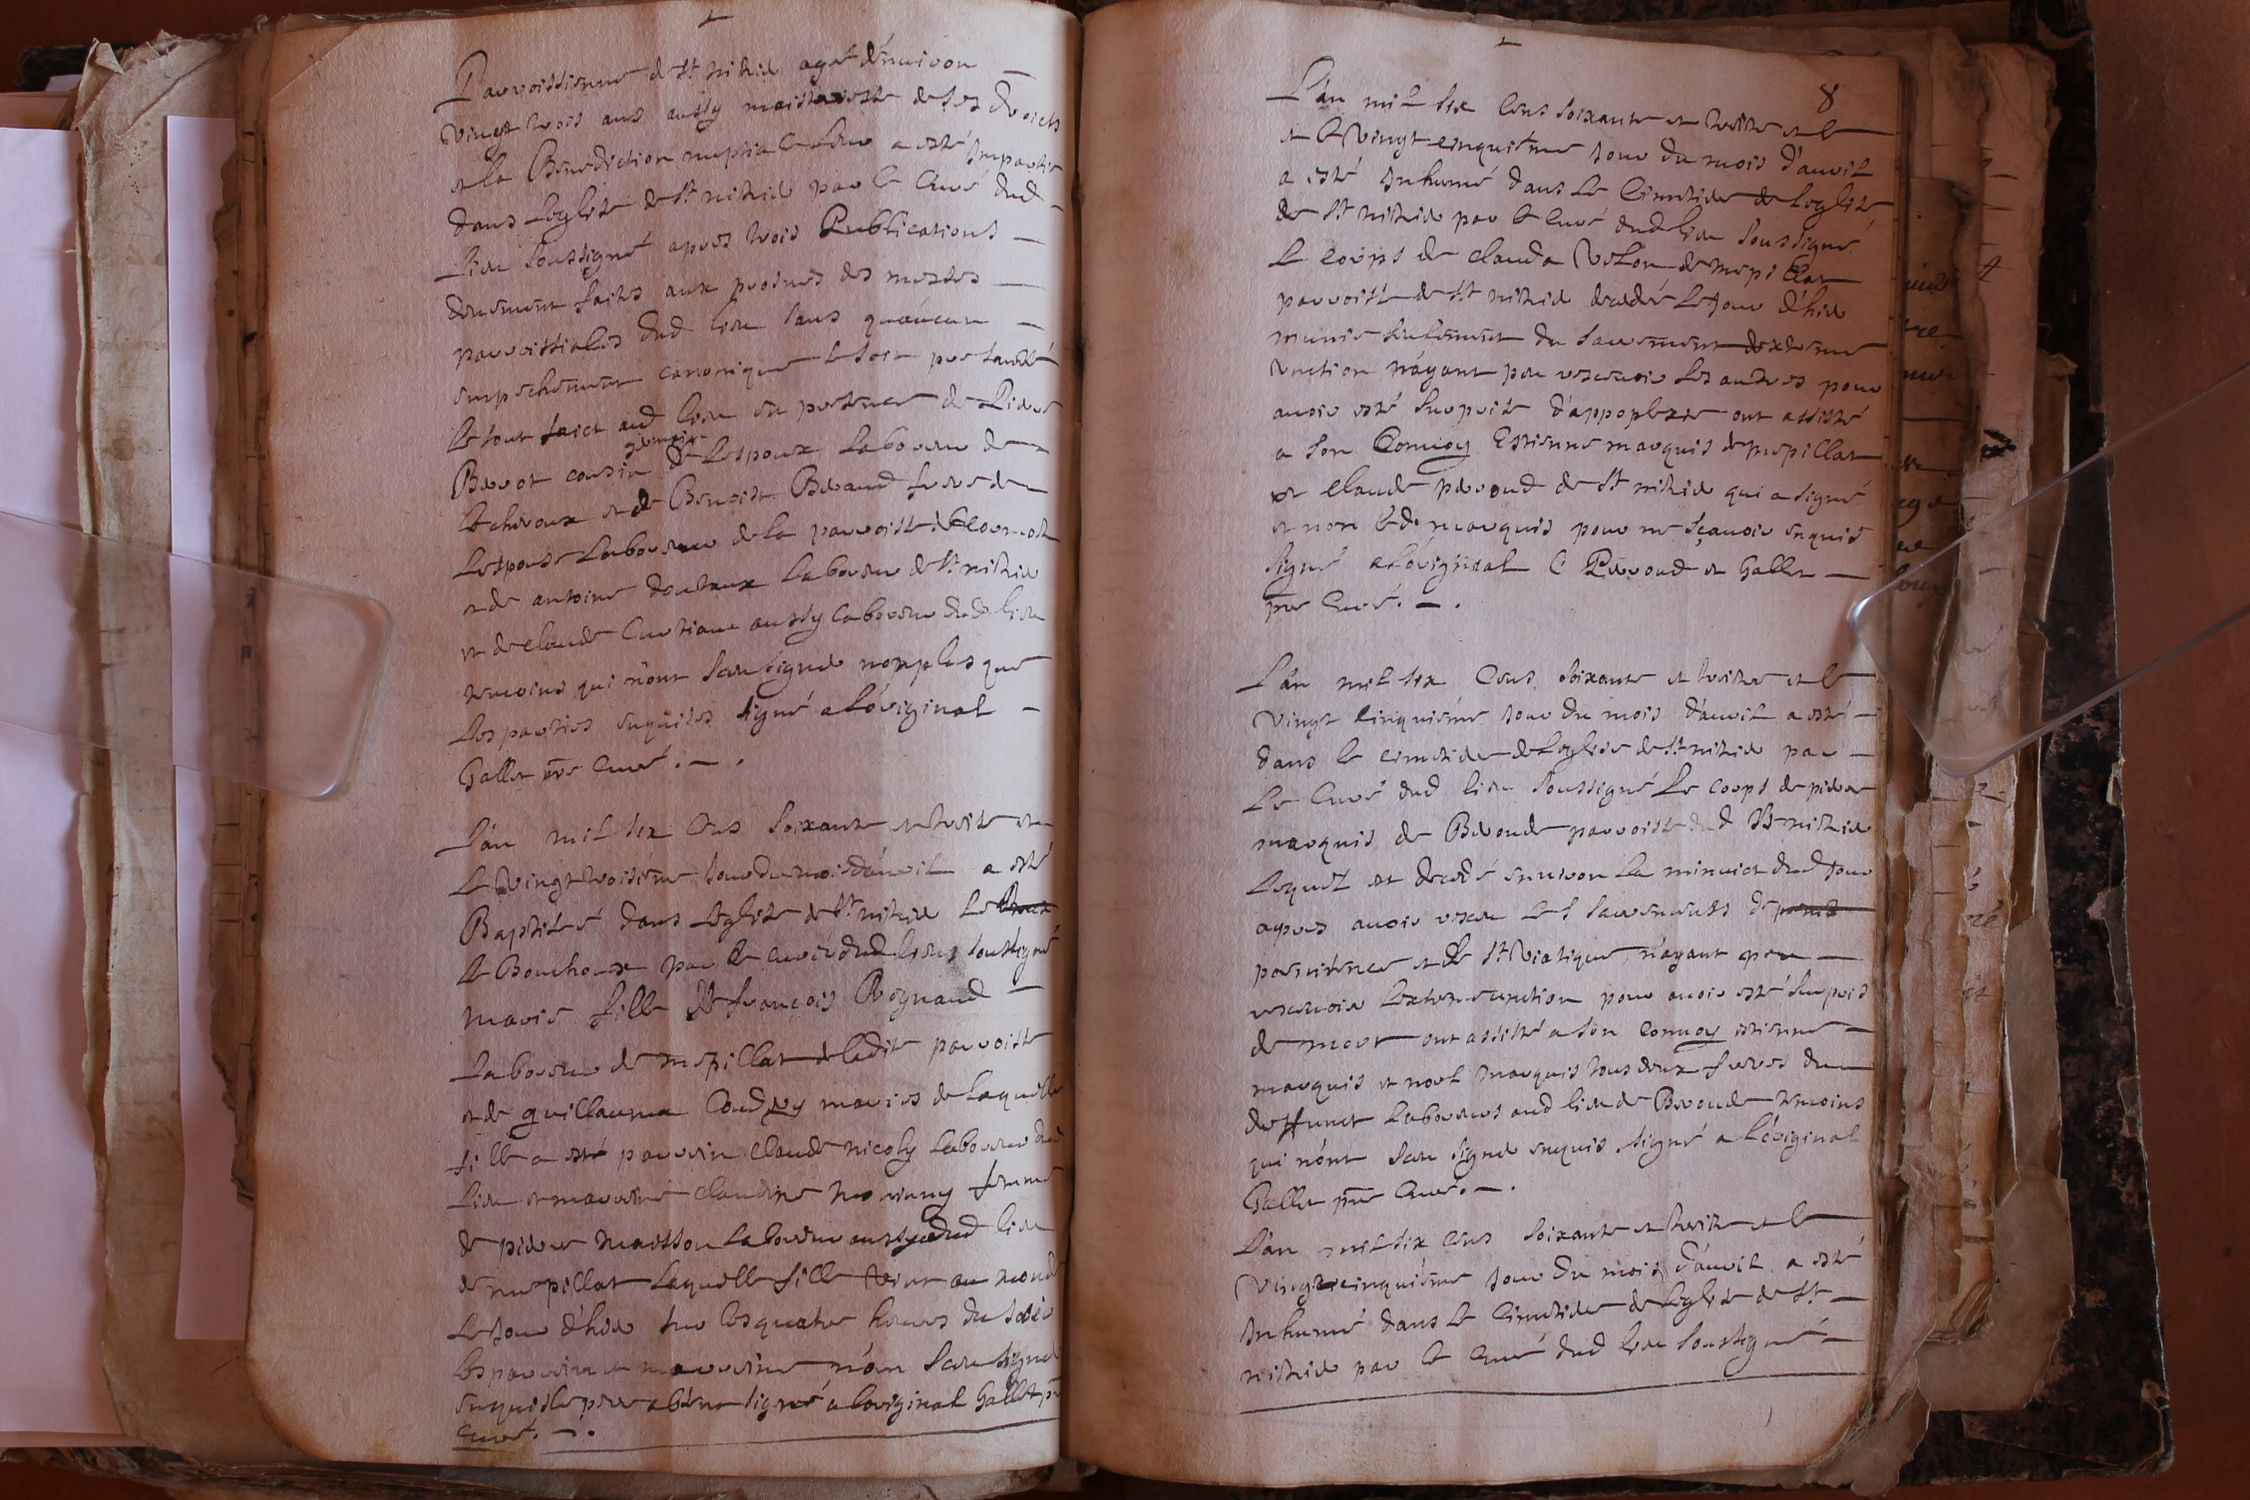 Parroissienne de St nizied agée d'environ
vingt trois ans aussy maistresse de ses droicts
et la Benediction nuptiale leur a esté impartie
dans Leglise de St nizied par le Curé dud
Lieu soussigné apres trois Publications
deuement faites aux prosnes des messes
parroissiales dud lieu sans quaucun
empeschement canonique se soit presanté
Le tout faict aud lieu en presence de Pierre
germain
Brevot cousin de Lespoux Laboureur de
et de Benoist Beraud frere de
Lespouse Laboureur de la parroisse de
et de antoine Laboureur de St nizied
et de claude aussy laboureur dud lieu
temoins qui n'ont sceu signer non plus que
Les parties enquises signé a L'original
Gallet pre Curé.
L'an mil six Cens soixante et treize et
Le vingt troisieme jour du mois d'avril a esté
Baptisée dans Leglise de St nizied
par le curé dud lieu soussigné
marie fille de françois Rognaud
Laboureur de mepillat de ladite parroisse
et de guillauma mariés de Laquelle
fille a esté parrein claude nicoly laboureur dud
Lieu et marreine claudine femme
de pierre masson Laboureur aussy dud lieu
de mepillat Laquelle fille vint au monde
Le jour d'hier sur les quatre heures du soir
Les parrein et marreine n'ont sceu signer
enquis le pere absent signé a loriginal Gallet pre
Curé.
8
L'an mil six Cens soixante et treize et le
et le vingt cinquiéme jour du mois d'avril
a esté inhumé dans le Cimetiere de Leglise
de St nizied par le curé dud lieu soussigné
le corps de clauda de mepillat
parroisse de St nizied decedée le jour d'hier
munie seulement du sacrement dextreme
onction n'ayant peu recevoir les autres pour
avoir esté surprise d'appoplexie ont assisté
a son Convoy Estienne marquis de mepillat
et claude pervoud de St nizied qui a signé
et non led marquis pour ne sçavoir enquis
signé a L'original C Pervoud et Gallet
pre Curé.
L'an mil six Cens soixante et treize et le
vingt cinquiéme jour du mois d'avril a esté
dans le cimetiere de Leglise de St nizied par
Le Curé dud lieu soussigné Le corps de pierre
marquis de Bevoude parroisse dud St nizied
Lequel est decedé environ la minuict dud jour
apres avoir receu les sacremens de
penitence et de St Viatique n'ayant peu
recevoir Lextreme onction pour avoir esté surpris
de mort ont assisté a son convoy estienne
marquis et noel marquis tous deux freres du
deffunct Laboureurs aud lieu de Bevoude temoins
qui n'ont sceu signer enquis signé a L'original
Gallet pre Curé.
L'an mil six cens soixante et treize et le
vingt cinquiéme jour du mois d'avril a esté
inhumé dans le Cimetiere de Leglise de St
nizied par le Curé dud lieu soussigné